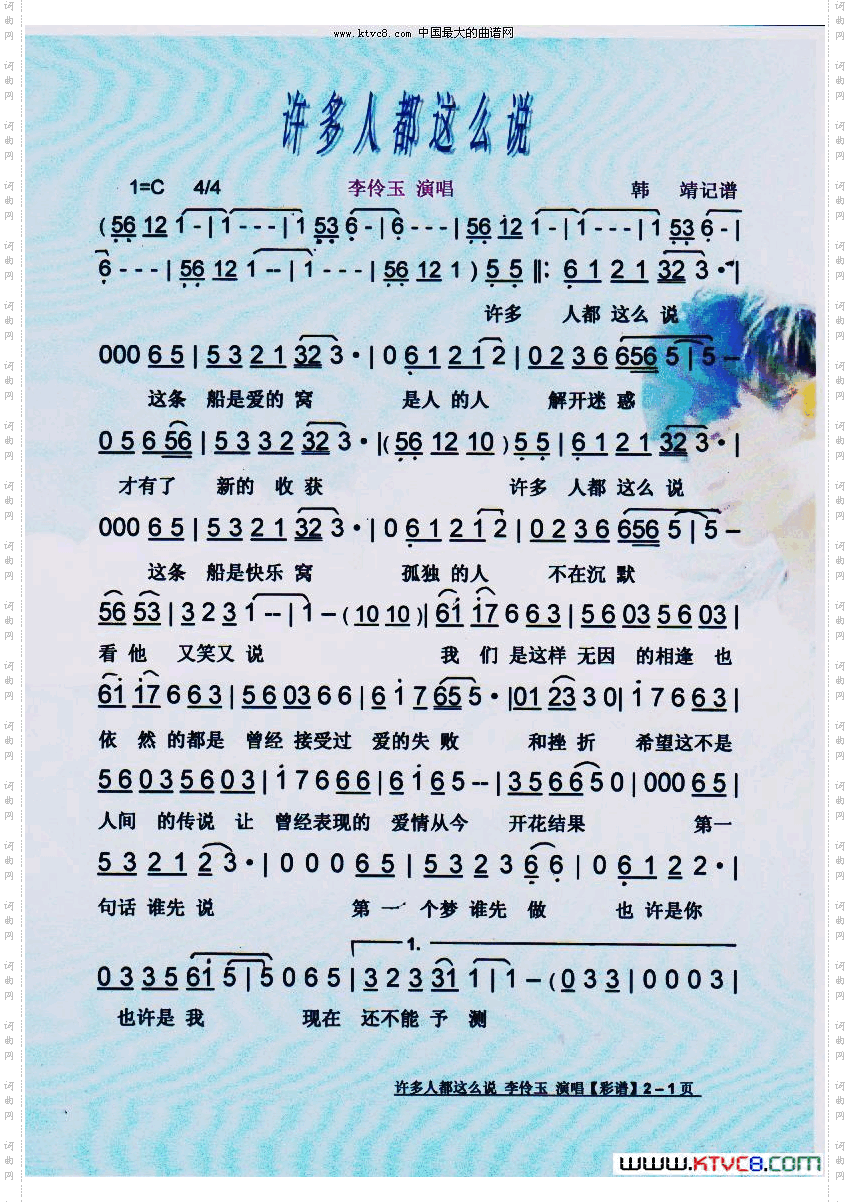 www.ktvc8.com 中国最大的曲谱网
许多人都这么说
1=C 4/4 李伶玉 演唱 韩 靖记谱
(56 12 1 - | 1 - - - | 1 53 6 - | 6 - - - | 56 12 1 - | 1 - - - | 1 53 6 - |
6 - - - | 56 12 1 -- | 1 - - - | 56 12 1 ) 5 5 ‖: 6 1 2 1 32 3 · |
许多 人都 这么 说
000 6 5 | 5 3 2 1 32 3 · | 0 6 1 2 1 2 | 0 2 3 6 656 5 | 5 –
这条 船是爱的 窝 是人 的人 解开迷 惑
0 5 6 56 | 5 3 3 2 32 3 · |( 56 12 10 ) 5 5 | 6 1 2 1 32 3 · |
才有了 新的 收 获 许多 人都 这么 说
000 6 5 | 5 3 2 1 32 3 · | 0 6 1 2 1 2 | 0 2 3 6 656 5 | 5 –
这条 船是快乐 窝 孤独 的人 不在沉 默
56 53 | 3 2 3 1 -- | 1 – ( 10 10 ) | 61 17 6 6 3 | 5 6 03 5 6 03 |
看 他 又笑又 说 我 们 是这样 无因 的相逢 也
61 17 6 6 3 | 5 6 03 6 6 | 6 1 7 65 5 · | 01 23 3 0 | 1 7 6 6 3 |
依 然 的都是 曾经 接受过 爱的失 败 和挫 折 希望这不是
5 6 0 3 5 6 0 3 | 1 7 6 6 6 | 6 1 6 5 -- | 3 5 6 6 5 0 | 000 6 5 |
人间 的传说 让 曾经表现的 爱情从今 开花结果 第一
5 3 2 1 2 3 · | 0 0 0 6 5 | 5 3 2 3 6 6 | 0 6 1 2 2 · |
句话 谁先 说 第 一 个梦 谁先 做 也 许是你
1.
0 3 3 5 61 5 | 5 0 6 5 | 3 2 3 31 1 | 1 – ( 0 3 3 | 0 0 0 3 |
也许是 我 现在 还不能 予 测
许多人都这么说 李伶玉 演唱【彩谱】2－1页
www.KTVC8.com
词曲网